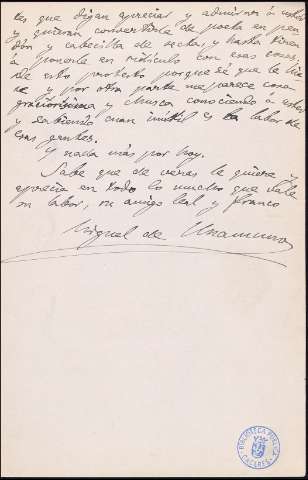 tes que digan apreciar y admirar á usted
y quieran convertirle de poeta en pen-
dón y cabecilla de secta, y hasta tiran
á ponerle en ridículo con esas cosas.
De esto protesto porque sé que le
y por otra parte me parece
y chusca conociendo á usted
y sabiendo cuan inutil es la labor de
esas gentes.
Y nada más por hoy.
Sabe que de veras le quiere y
aprecia en todo lo mucho que vale
su labor, su amigo leal y franco
Miguel de Unamuno
BIBLIOTECA PUBLICA
CACERES